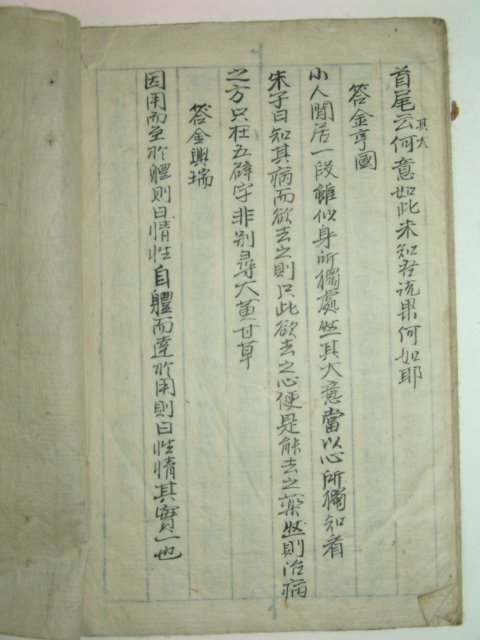 首尾云其大何意如此未知吾說果何如耶
答金亨國
小人閒居一段雖似身所獨處然其大意當以心所獨知者
朱子曰知其病而欲去之則只此欲去之心便是能去之藥然則治病
之方只在五辟字非別尋大黃甘草
答金興瑞
因用而至於體則曰情性自體而達於用則曰性情其實一也